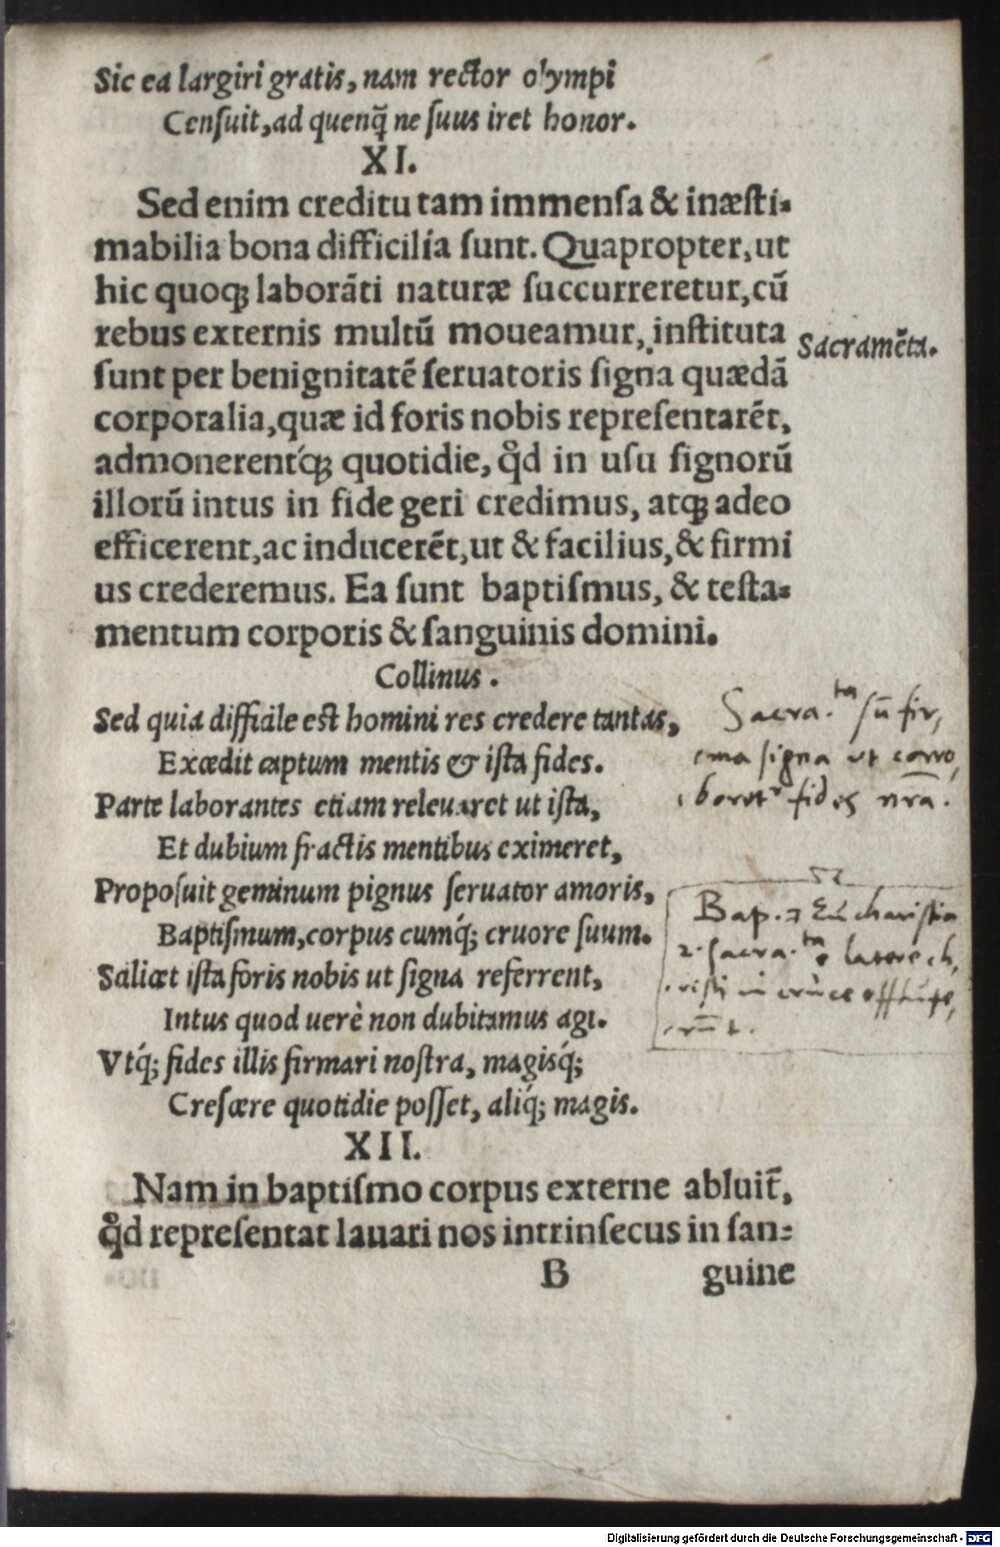 Sic ea largiri gratis, nam rector olympi
Censuit, ad quenq̃ ne ſuus iret honor.
XI.
Sed enim creditu tam immenſa & inæſti-
mabilia bona difficilia ſunt. Quapropter, ut
hic quoq; laborãti naturæ ſuccurreretur, cũ
rebus externis multũ moueamur, inſtituta
Sacramẽta.
ſunt per benignitatẽ ſeruatoris ſigna quædã
corporalia, quæ id foris nobis repreſentarẽt,
admonerentq́; quotidie, qd̉ in uſu ſignorũ
illorũ intus in fide geri credimus, atq; adeo
efficerent, ac inducerẽt, ut & facilius, & firmi
us crederemus. Ea ſunt baptiſmus, & teſta-
mentum corporis & ſanguinis domini.
Collinus.
Sed quia difficile eſt homini res credere tantas,
Excedit captum mentis & iſta fides.
Parte laborantes etiam releuaret ut iſta,
Et dubium fractis mentibus eximeret,
Propoſuit geminum pignus ſeruator amoris,
Baptiſmum, corpus cumq́; cruore ſuum.
Scilicet iſta foris nobis ut ſigna referrent,
Intus quod uerè non dubitamus agi.
Vtq́; fides illis firmari noſtra, magisq́;
Creſcere quotidie poſſet, aliq́; magis.
Sacra.ta ſũ fir,
ma ſigna ut corro,
boret fides nrã.
Bap. ⁊ Eucharistia
2. ſacra.ta e latere ch,
riſti in cruce
XII.
Nam in baptiſmo corpus externe abluit̃,
qd̉ repreſentat lauari nos intrinſecus in ſan-
B guine
Digitalisierung gefördert durch die Deutsche Forschungsgemeinschaft - DFG